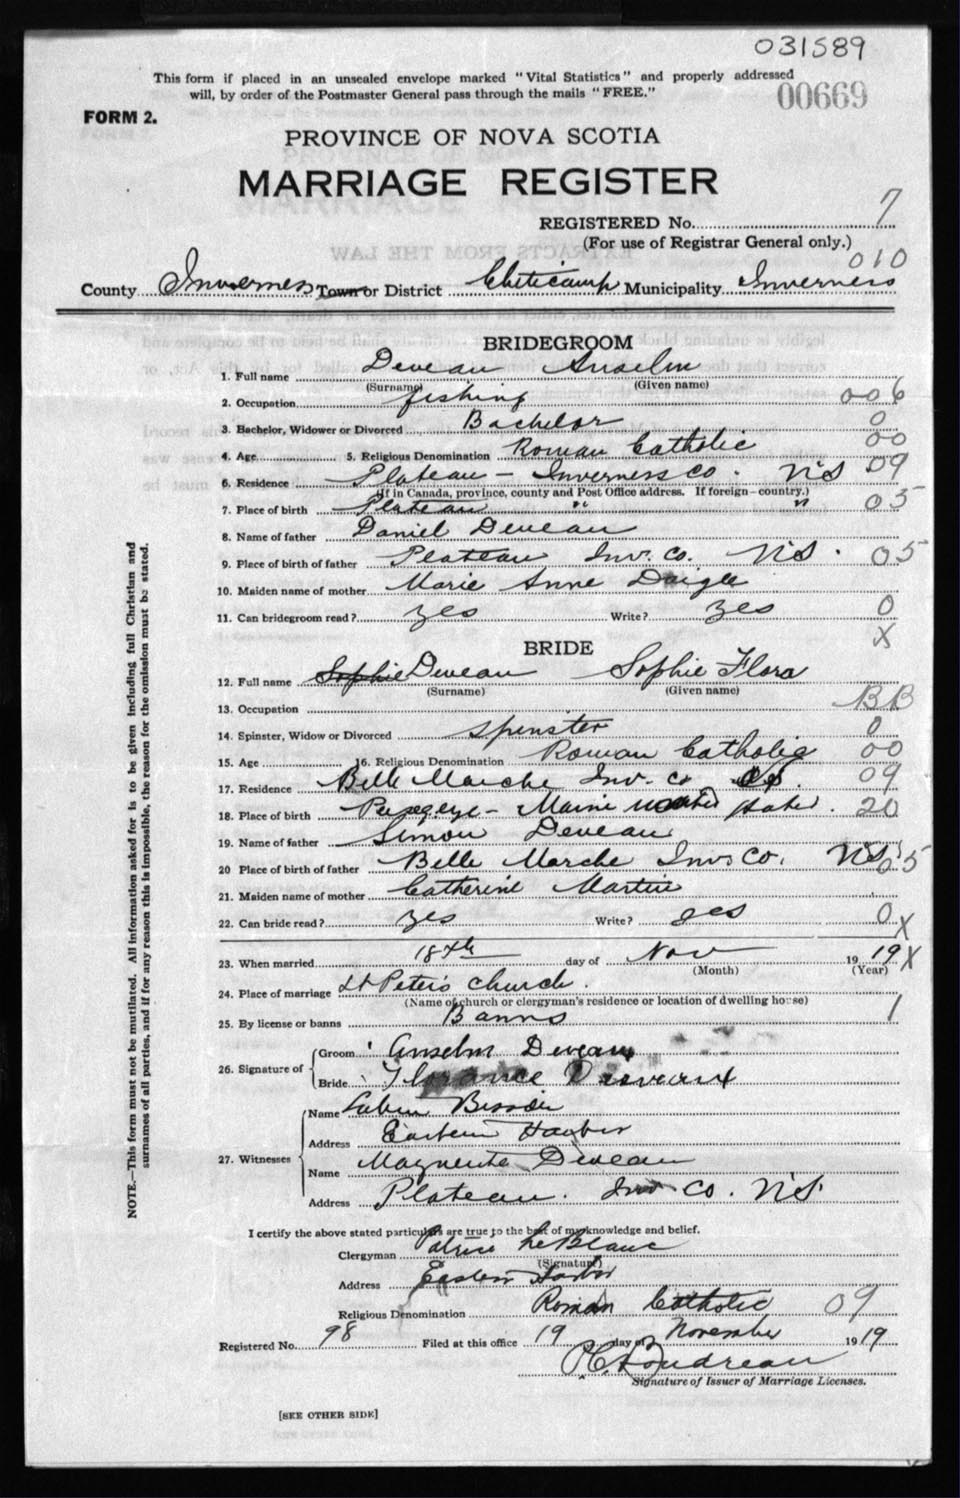 031589
This form if placed in an unsealed envelope marked "Vital Statistics" and properly addressed
will, by order of the Postmaster General pass through the mails "FREE."
00669
FORM 2.
PROVINCE OF NOVA SCOTIA
MARRIAGE REGISTER
REGISTERED No. 7
(For use of Registrar General only.)
010
County Inverness Town or District Cheticamp Municipality Inverness
BRIDEGROOM
1. Full name Deveau Anselm
(Surname) (Given name)
2. Occupation fishing 006
3. Bachelor, Widower or Divorced Bachelor 0
4. Age 5. Religious Denomination Roman Catholic 00
6. Residence Plateau - Inverness Co. N.S 09
(If in Canada, province, county and Post Office address. If foreign—country.)
7. Place of birth Plateau " " 05
8. Name of father Daniel Deveau
9. Place of birth of father Plateau Inv. Co. N.S. 05
10. Maiden name of mother Marie Anne Daigle
11. Can bridegroom read? yes Write? yes 0
X
BRIDE
12. Full name Sophie Deveau Sophie Flora
(Surname) (Given name)
13. Occupation BB
14. Spinster, Widow or Divorced spinster 0
15. Age 16. Religious Denomination Roman Catholic 00
17. Residence Belle Marche Inv. Co 09
18. Place of birth Maine states. 20
19. Name of father Simon Deveau
20 Place of birth of father Belle Marche Inv. Co. N.S. 05
21. Maiden name of mother Catherine Martin
22. Can bride read? yes Write? yes 0
X
23. When married 18th day of Nov 19 19 X
(Month) (Year)
24. Place of marriage St Peter's Church.
(Name of church or clergyman's residence or location of dwelling house)
25. By license or banns Banns 1
26. Signature of Groom Anselm Deveau
Bride Florance Deveaux
27. Witnesses
Name
Address Eastern Harbor
Name Marguerite Deveau
Address Plateau. Inv Co. N.S.
I certify the above stated particulars are true to the best of my knowledge and belief.
Clergyman LeBlanc
(Signature)
Address Eastern Harbor
Religious Denomination Roman Catholic 09
Registered No. 98 Filed at this office 19 day of November 1919
Boudreau
Signature of Issuer of Marriage Licenses.
[SEE OTHER SIDE]
NOTE.—This form must not be mutilated. All information asked for is to be given including full Christian and
surnames of all parties, and if for any reason this is impossible, the reason for the omission must be stated.